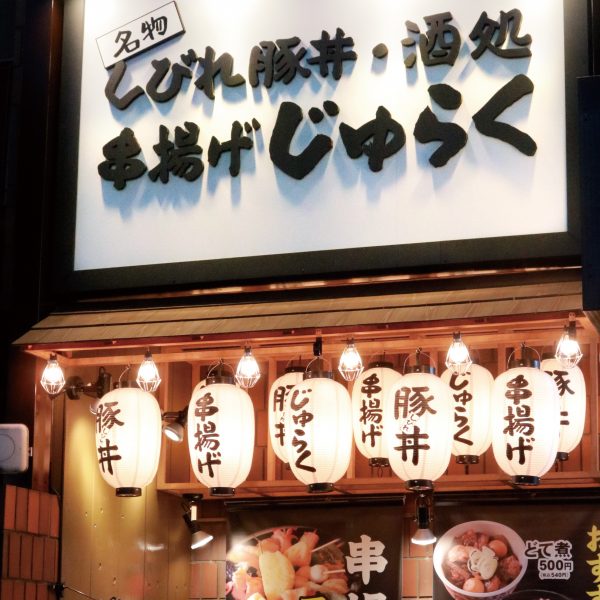 名物
しびれ豚丼・酒処
串揚げじゅらく
豚丼
串揚げ
じゅらく
串揚げ
豚丼
じゅらく
串揚げ
串
どて煮
500円
(税込540円)
おす